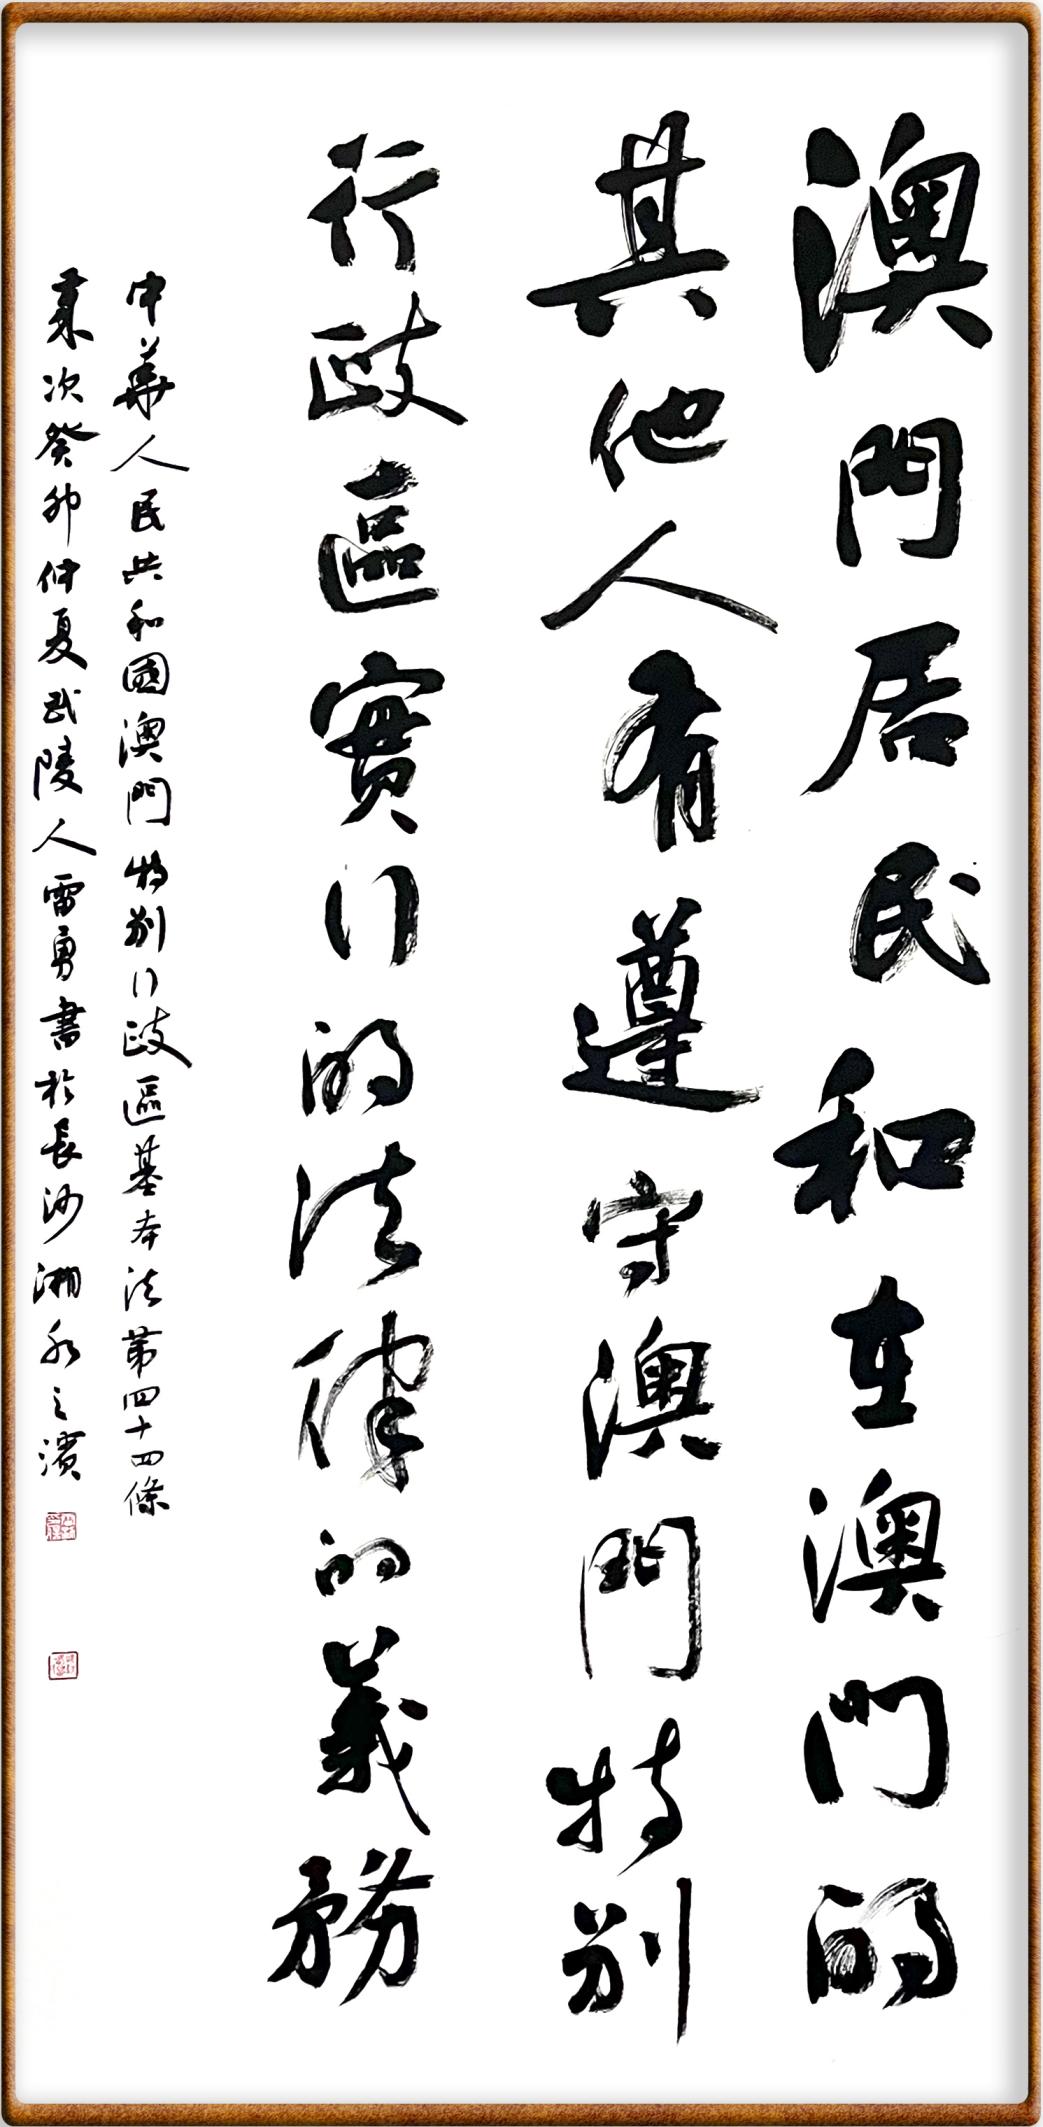 澳門居民和在澳門的
其他人有遵守澳門特別
行政區實行的法律的義務
中華人民共和國澳門特別行政區基本法第四十四條
歲次癸卯仲夏武陵人雷勇書於長沙湘水之濱